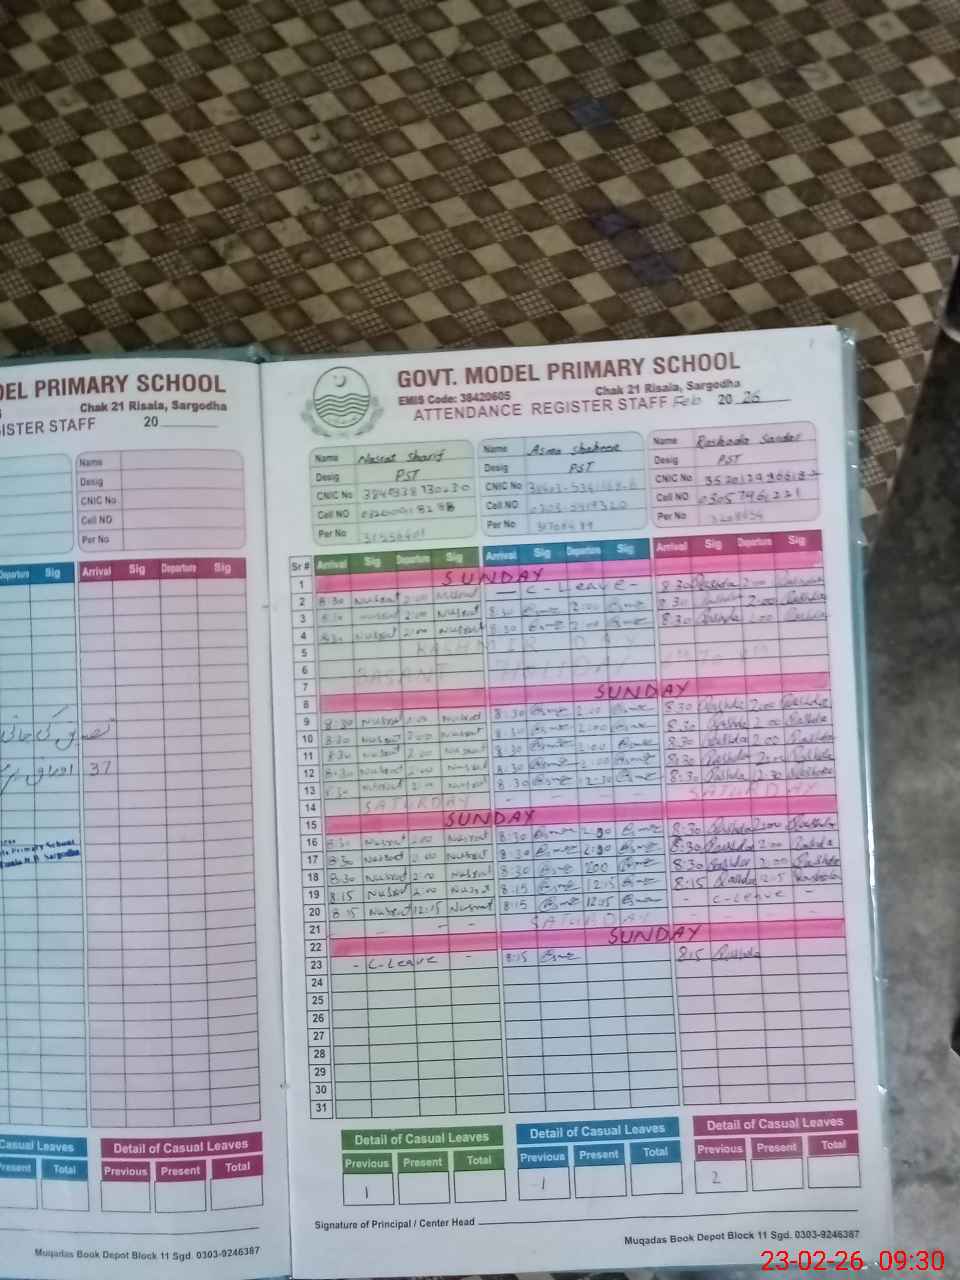 DEL PRIMARY SCHOOL
Chak 21 Risala, Sargodha
ISTER STAFF 20
Name
Desig
CNIC No
Cell NO
Per No
Departure Sig Arrival Sig Departure Sig
37
Casual Leaves Detail of Casual Leaves
Present Total Previous Present Total
Muqadas Book Depot Block 11 Sgd. 0303-9246387
GOVT. MODEL PRIMARY SCHOOL
EMIS Code: 38420605 Chak 21 Risala, Sargodha
ATTENDANCE REGISTER STAFF Feb 2026
Name Nasrat Sharif Name Asma Shaheen Name
Desig PST Desig PST Desig PST
CNIC No CNIC No CNIC No
Cell NO Cell NO Cell NO
Per No Per No Per No
Sr # Arrival Sig Departure Sig Arrival Sig Departure Sig Arrival Sig Departure Sig
1 SUNDAY
2 8:30 Nusrat 2:00 Nusrat - C-Leave - 8:30 Rashda 2:00 Rashda
3 8:30 Nusrat 2:00 Nusrat 8:30 Asma 2:00 Asma 8:30 Rashda 2:00 Rashda
4 8:30 Nusrat 2:00 Nusrat 8:30 Asma 2:00 Asma 8:30 Rashda 2:00 Rashda
5 KASHMIR DAY
6 BASANT HOLIDAY
7
8 SUNDAY
9 8:30 Nusrat 2:00 Nusrat 8:30 Asma 2:00 Asma 8:30 Rashda 2:00 Rashda
10 8:30 Nusrat 2:00 Nusrat 8:30 Asma 2:00 Asma 8:30 Rashda 2:00 Rashda
11 8:30 Nusrat 2:00 Nusrat 8:30 Asma 2:00 Asma 8:30 Rashda 2:00 Rashda
12 8:30 Nusrat 2:00 Nusrat 8:30 Asma 2:00 Asma 8:30 Rashda 2:00 Rashda
13 8:30 Nusrat Nusrat 8:30 Asma 12:30 Asma 8:30 Rashda 12:30 Rashda
14 SATURDAY - - - - SATURDAY
15 SUNDAY
16 8:30 Nusrat 2:00 Nusrat 8:30 Asma 2:00 Asma 8:30 Rashda 2:00 Rashda
17 8:30 Nusrat 2:00 Nusrat 8:30 Asma 2:00 Asma 8:30 Rashda 2:00 Rashda
18 8:30 Nusrat 2:00 Nusrat 8:30 Asma 2:00 Asma 8:30 Rashda 2:00 Rashda
19 8:15 Nusrat 2:00 Nusrat 8:15 Asma 12:15 Asma 8:15 Rashda 12:15 Rashda
20 8:15 Nusrat 12:15 Nusrat 8:15 Asma 12:15 Asma - C-Leave -
21 - - - - SATURDAY - - - -
22 SUNDAY
23 - C-Leave - 8:15 Asma 8:15 Rashda
24
25
26
27
28
29
30
31
Detail of Casual Leaves Detail of Casual Leaves Detail of Casual Leaves
Previous Present Total Previous Present Total Previous Present Total
1 1 2
Signature of Principal / Center Head
Muqadas Book Depot Block 11 Sgd. 0303-9246387
23-02-26 09:30